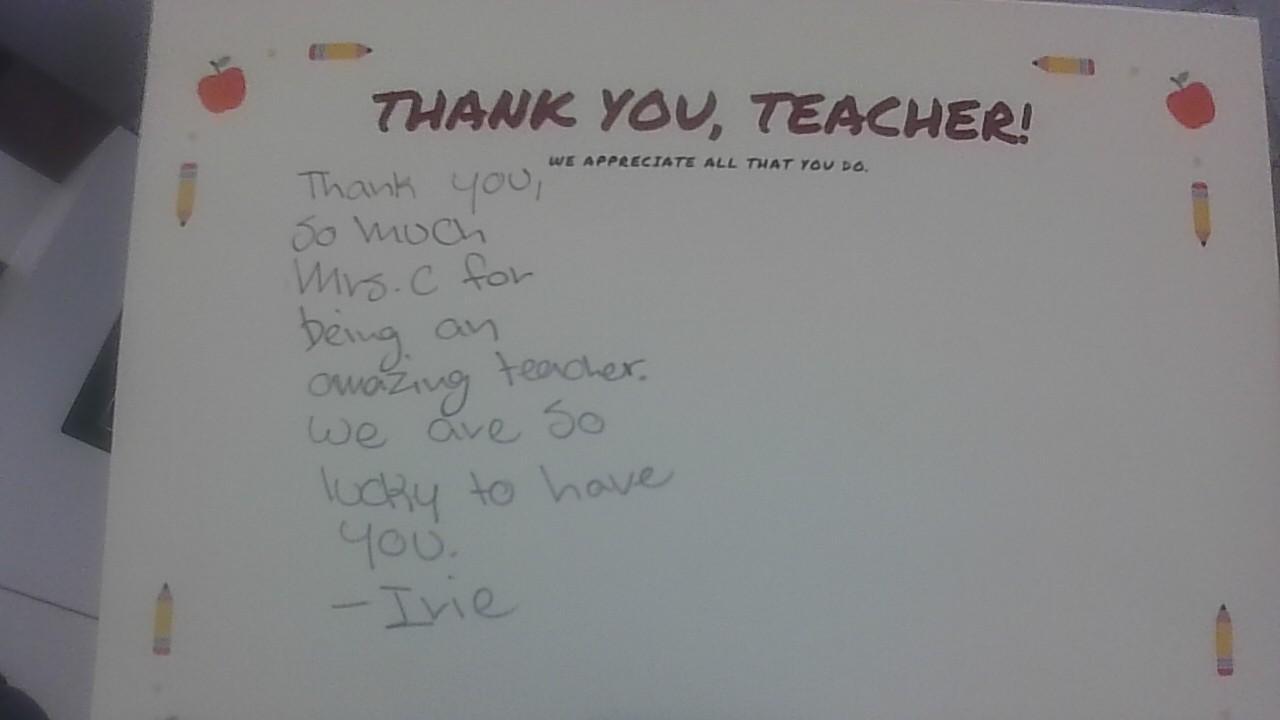 THANK YOU, TEACHER!
WE APPRECIATE ALL THAT YOU DO.
Thank you,
So much
Mrs. C for
being an
amazing teacher.
We are So
lucky to have
you.
- Irie